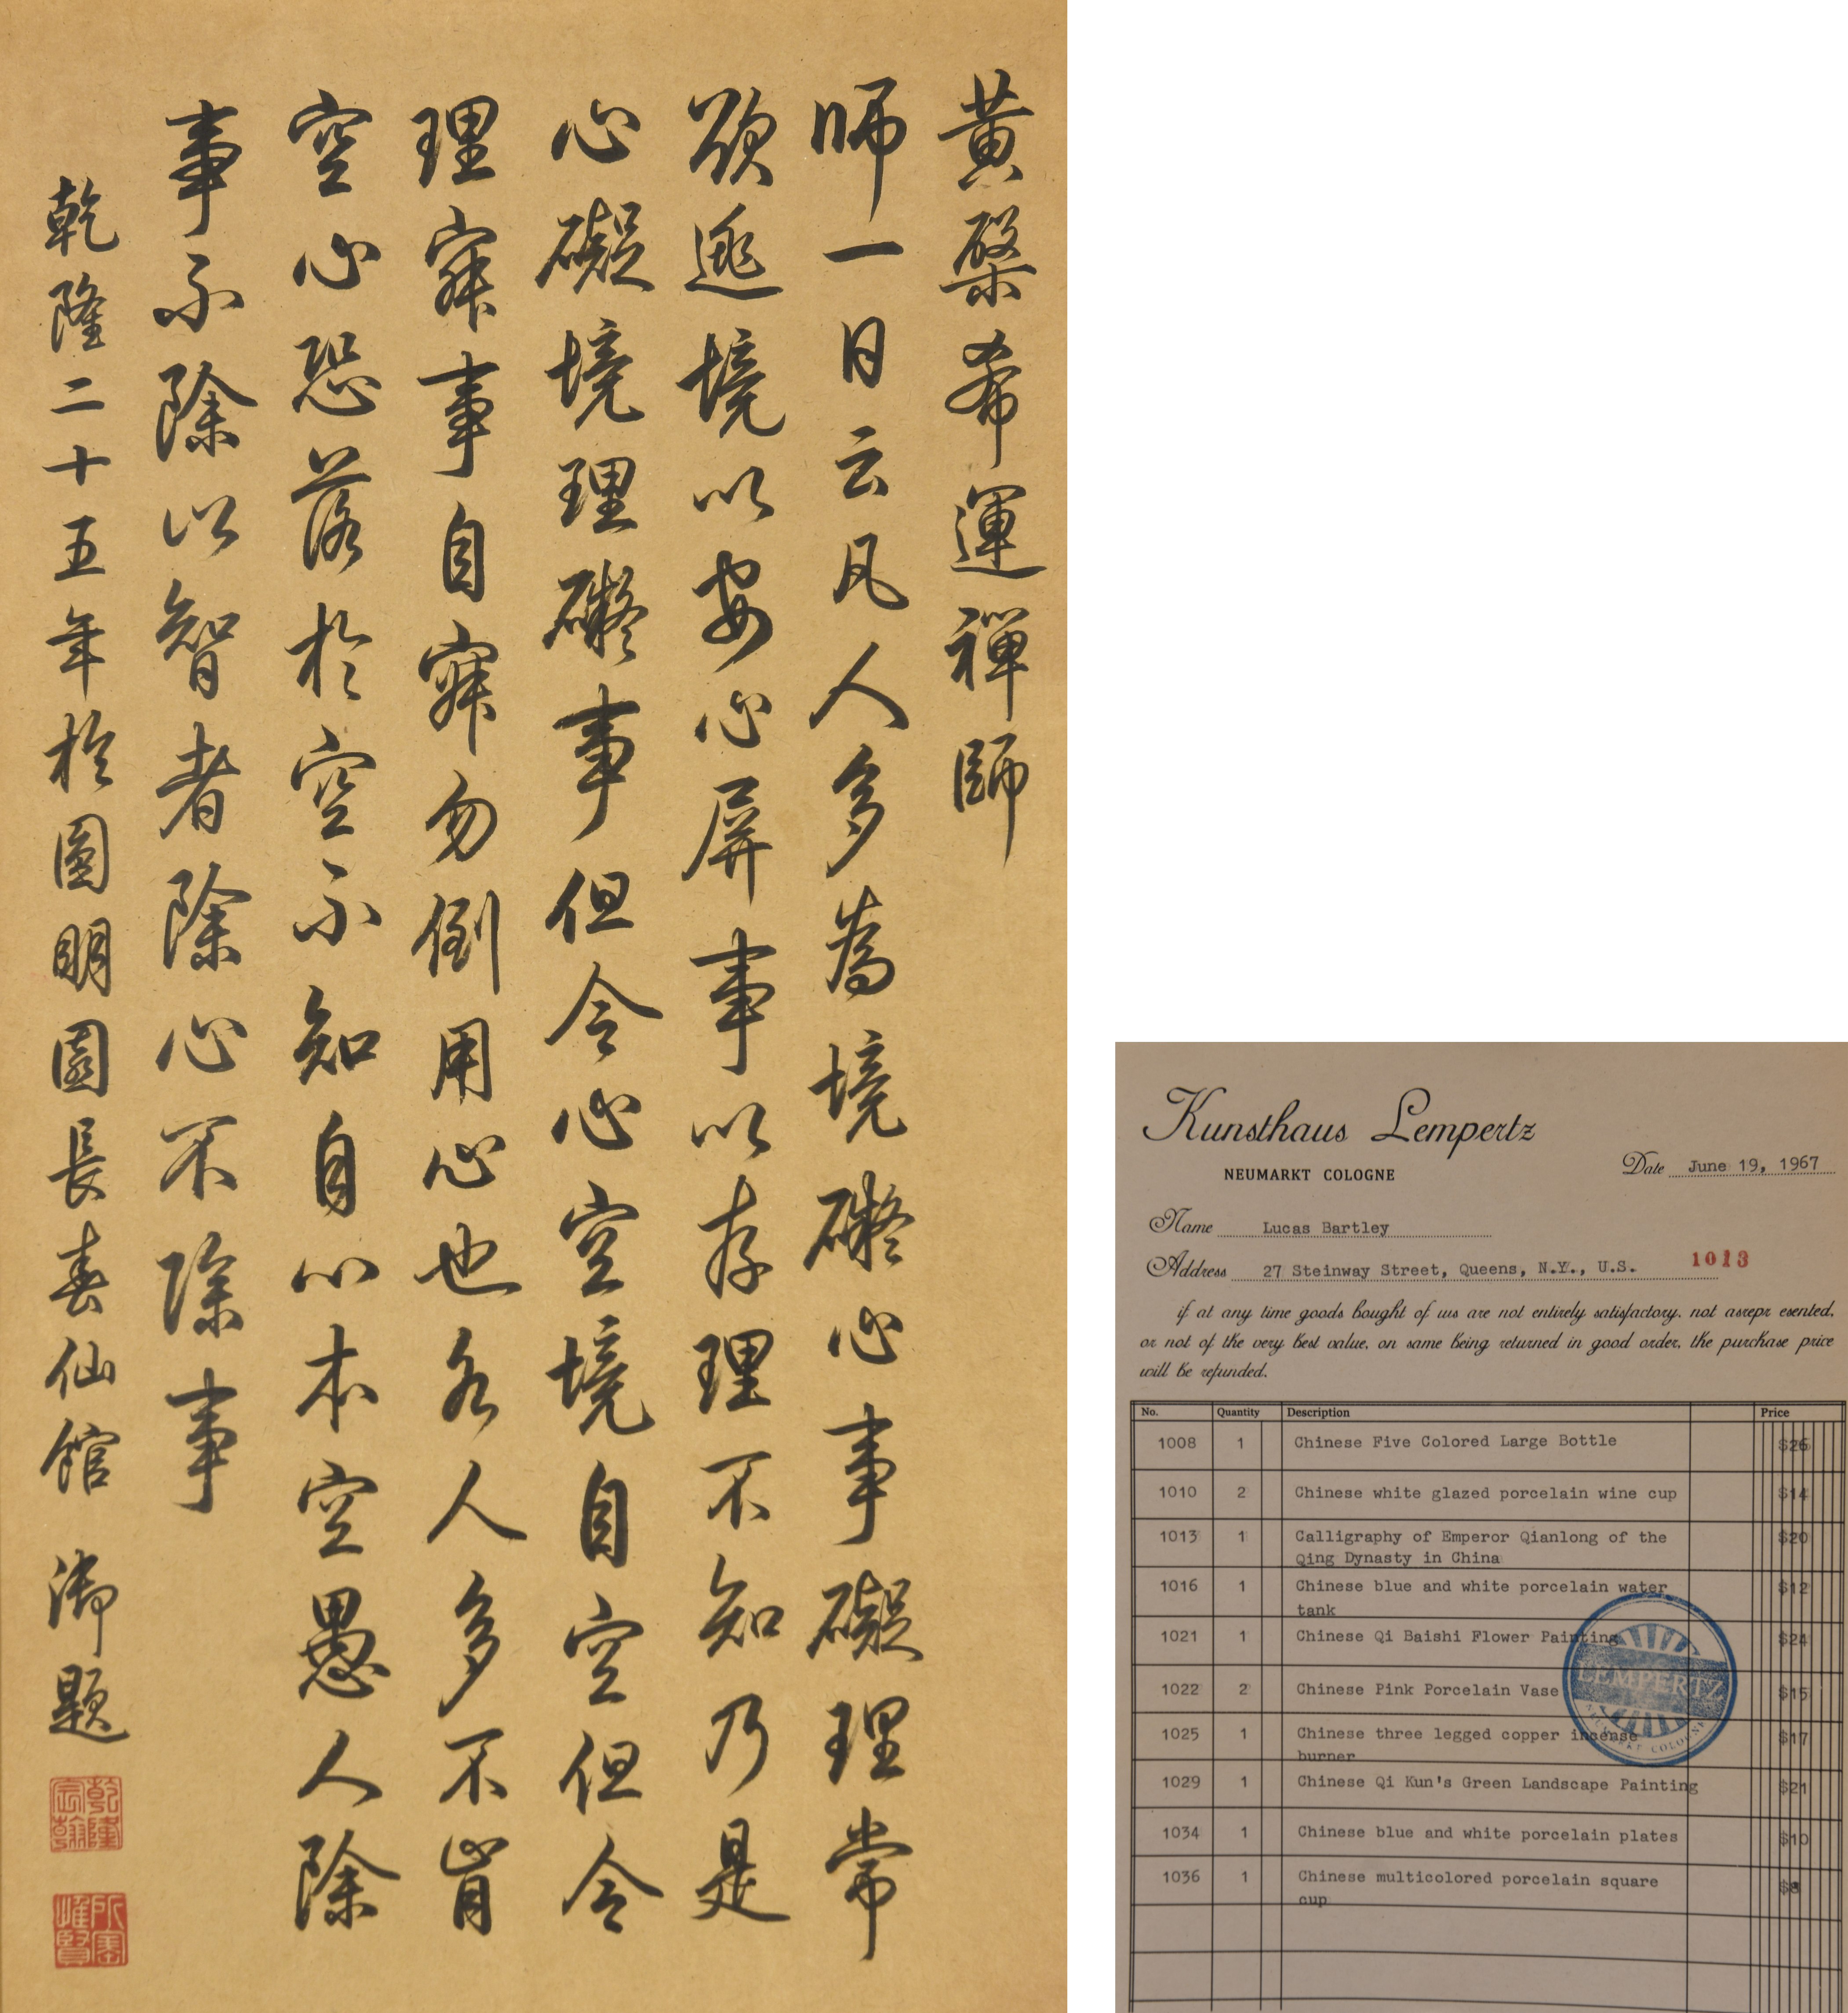 黄檗希運禪師
師一日云凡人多為境礙心事礙理常
欲逃境以安心屏事以存理不知乃是
心礙境理礙事但令心空境自空但令
理寂事自寂勿倒用心也名人多不肯
空心恐落於空不知自心本空愚人除
事不除心智者除心不除事
乾隆二十五年於圓明園長春仙館 御題
乾隆宸翰
所寶惟賢
Kunsthaus Lempertz
NEUMARKT COLOGNE
Date June 19, 1967
Name Lucas Bartley
Address 27 Steinway Street, Queens, N.Y., U.S. 1013
if at any time goods bought of us are not entirely satisfactory, not asrepr esented,
or not of the very best value, on same being returned in good order, the purchase price
will be refunded.
No. Quantity Description Price
1008 1 Chinese Five Colored Large Bottle $26
1010 2 Chinese white glazed porcelain wine cup $14
1013 1 Calligraphy of Emperor Qianlong of the $20
Qing Dynasty in China
1016 1 Chinese blue and white porcelain water $12
tank
1021 1 Chinese Qi Baishi Flower Painting $24
1022 2 Chinese Pink Porcelain Vase $15
1025 1 Chinese three legged copper incense $17
burner
1029 1 Chinese Qi Kun's Green Landscape Painting $21
1034 1 Chinese blue and white porcelain plates $10
1036 1 Chinese multicolored porcelain square $8
cup
LEMPERTZ
NEUMARKT COLOGNE